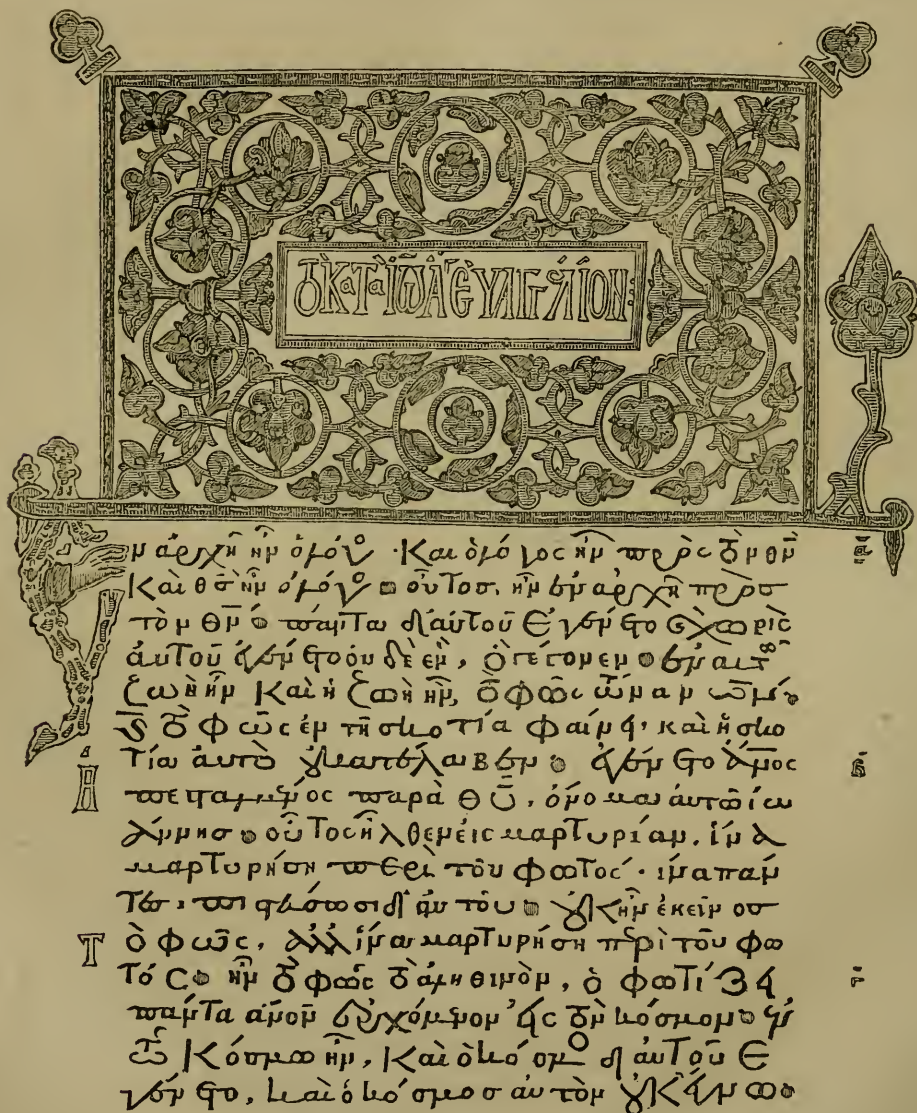 τὸ κατὰ ἰω̅ ἅ εὐαγγέλιον:
Ἐν ἀρχῆ ἦν ὁ λόγος · Καὶ ὁ λόγος ἦν πρὸς τὸν θ̅ν̅
Καὶ θ̅ς̅ ἦν ὁ λόγος · οὗτος, ἦν ἐν ἀρχῆ πρὸς
τὸν θ̅ν̅ · πάντα δι αὐτοῦ ἐγένετο ϗ χωρὶς
αὐτοῦ ἐγένετο οὐδὲ ἓν, ὃ γέγονεν · ἐν αὐτῶ
ζωὴ ἦν Καὶ ἡ ζωὴ ἦν, τὸ φῶς τῶν ἀν̅ω̅ν ·
ϗ τὸ φῶς ἐν τῆ σκοτία φαίνει, καὶ ἡ σκο
τία αὐτὸ οὐ κατέλαβεν · ἐγένετο ἄν̅ος
ἀπεσταλμένος παρὰ θ̅υ̅, ὄνομα αὐτῶ ἰω
άννης · οὗτος ἦλθεν εἰς μαρτυρίαν, ἵνα
μαρτυρήση περὶ τοῦ φωτός · ἵνα πάν
τες, πιστεύσωσι δι αὐτοῦ · οὐκ ἦν ἐκεῖνος
τὸ φῶς, ἀλλ ἵνα μαρτυρήση περὶ τοῦ φω
τός · ἦν τὸ φῶς τὸ ἀληθινὸν, ὃ φωτίζει
πάντα ἄν̅ο̅ν ἐρχόμενον εἰς τὸν κόσμον · ἐν
τῶ Κόσμω ἦν, Καὶ ὁ κόσμος δι αὐτοῦ ἐ
γένετο, καὶ ὁ κόσμος αὐτὸν οὐκ ἔγνω ·